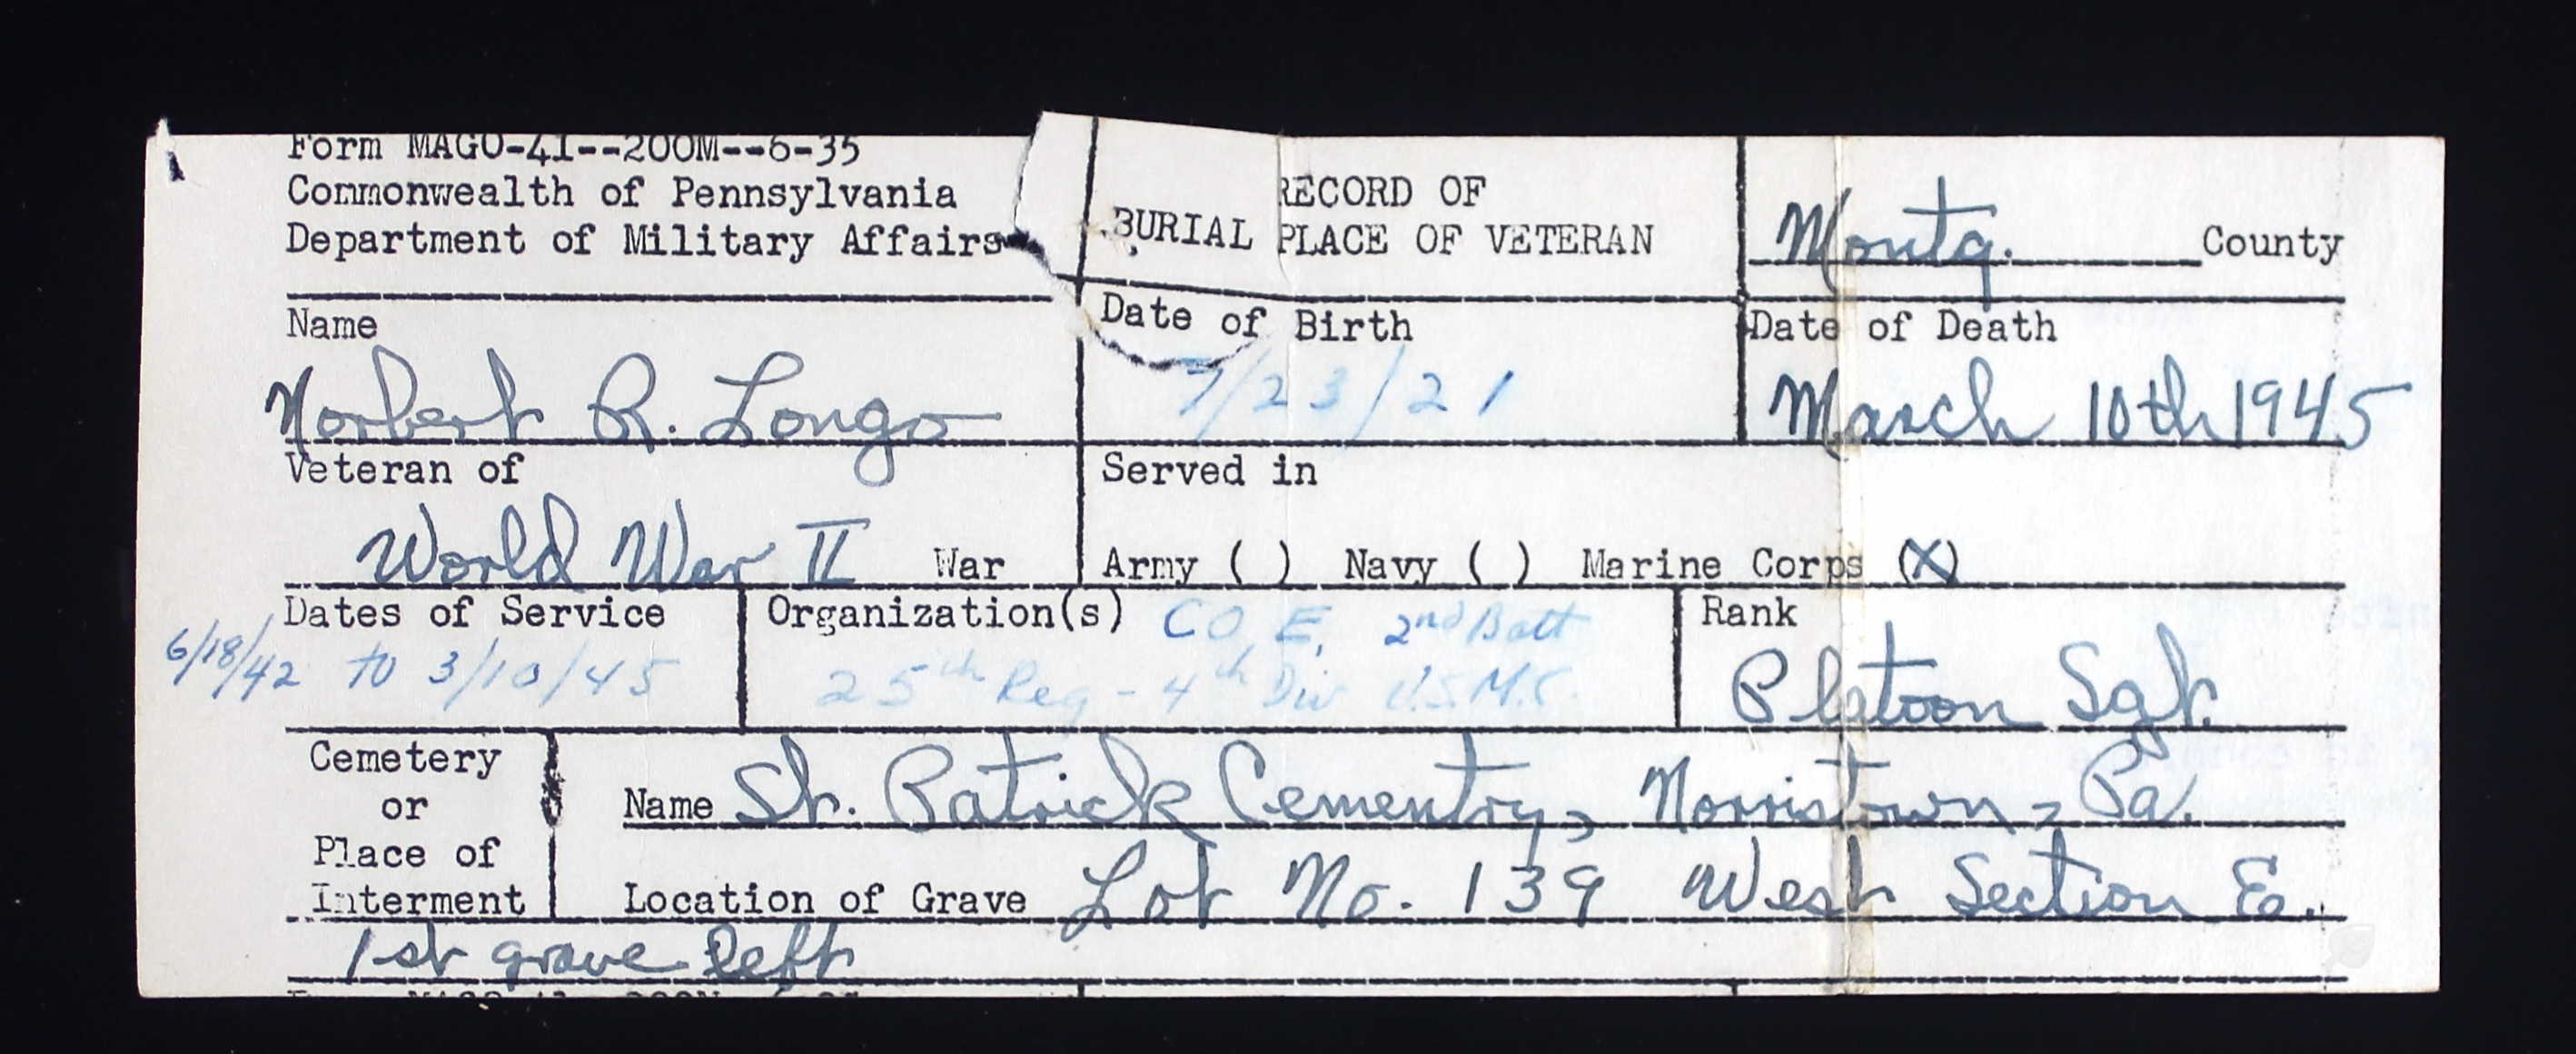 Form MAGO-41--200M--6-35
Commonwealth of Pennsylvania
Department of Military Affairs
RECORD OF
BURIAL PLACE OF VETERAN
Montg. County
Name
Norbert R. Longo
Date of Birth
7/23/21
Date of Death
March 10th 1945
Veteran of
World War II War
Served in
Army ( ) Navy ( ) Marine Corps (X)
Dates of Service
6/18/42 to 3/10/45
Organization(s) CO E, 2nd Batt
25th Reg - 4th Div U.S.M.C.
Rank
Platoon Sgt.
Cemetery
or
Place of
Interment
Name St. Patrick Cementry, Norristown, Pa.
Location of Grave Lot No. 139 West Section E.
1st grave left